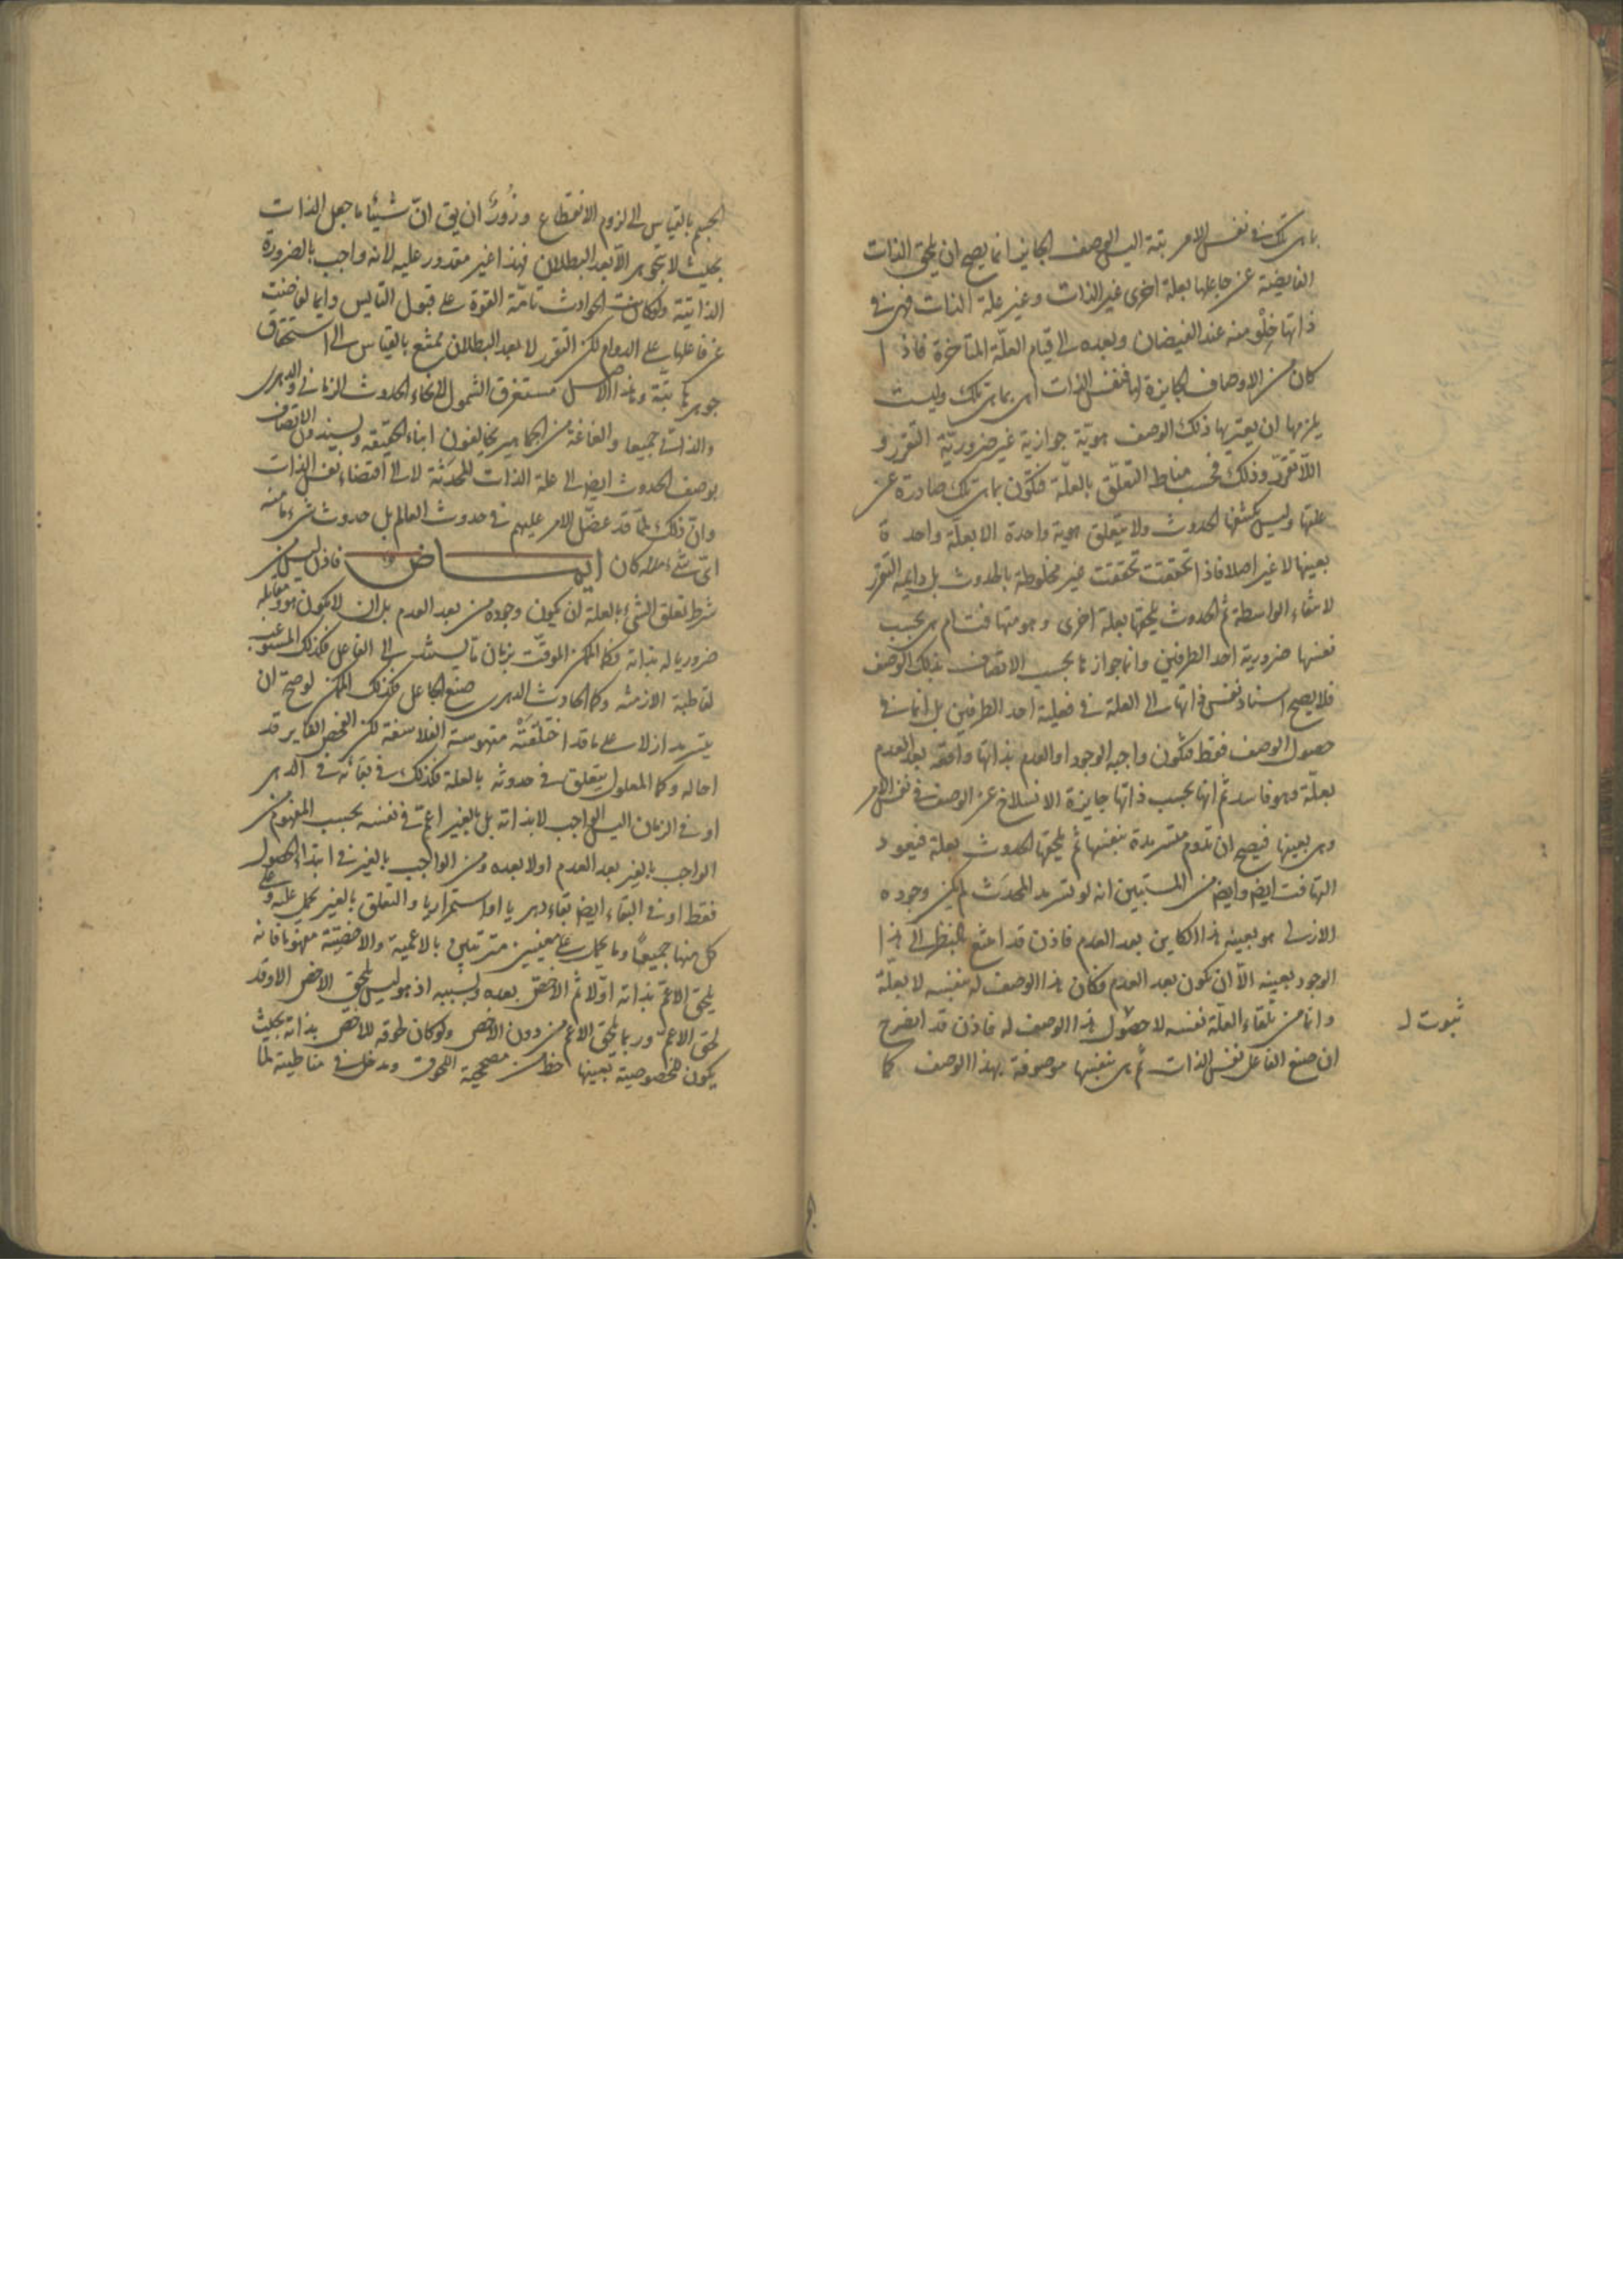 ما هى تلك فى نفس الامر بتة اليس الوصف الجايز انما يصح ان يلحق الذات
الفايضة عن جاعلها بعلة اخرى غير الذات وغير علة الذات فهى فى
ذاتها خلو منه عند الفيضان وبعده الى قيام العلّة المتأخرة فاذا
كان من الاوصاف الجايزة لها فنفس الذات اى بما هى تلك وليست
يلزمها ان يعتريها ذلك الوصف هوية جوازية غير ضروريّة التقرر و
اللاتقرر وذلك فحسب مناط التعلّق بالعلّة فتكون بما هى تلك صادرة عن
علتها وليس يكتنفها الحدوث ولا يتعلق هوية واحدة الا بعلة واحدة
بعينها لا غير اصلا فاذا تحققت تحققت غير مخلوطة بالحدوث بل دايمة التقرر
لانتفاء الواسطة ثم الحدوث يلحقها بعلة اخرى وهو متهافت ام هى بحسب
نفسها ضرورية احد الطرفين وانما جوازها بحسب الاتصاف بذلك الوصف
فلا يصح استناد نفس ذاتها الى العلة فى فعلية احد الطرفين بل انما فى
حصول الوصف فقط فتكون واجبة الوجود او العدم بذاتها واقعة بعد العدم
بعلّة وهو فاسد ثم انها بحسب ذاتها جايزة الانسلاخ عن الوصف فى نفس الامر
وهى بعينها فيصح ان تدوم متسرمدة بنفسها ثم يلحقها الحدوث بعلة فيعود
التهافت ايض وايض من المستبين انه لو تسرمد المحدَث لم يكن وجوده
الازلى هو بعينه هذا الكاين بعد العدم فاذن قد امتنع بالنظر الى هذا
الوجود بعينه الّا ان يكون بعد العدم فكان هذا الوصف له بنفسه لا بعلة
وانما من تلقاء العلّة نفسه لا حصول هذا الوصف له فاذن قد انصرح
ثبوت ل
ان صنع الفاعل نفس الذات ثم هى بنفسها موصوفة بهذا الوصف كما
الجسم بالقياس الى لزوم الانقطاع وزُورٌ ان يق انّ شيئا ما جعل الذات
بحيث لا تجوهر الّا بعد البطلان فهذا غير مقدور عليه لانه واجب بالضرورة
الذاتية ولو كانت الحوادث تامّة القوة على قبول التأييس دايما لفاضت
عن فاعلها على الدوام لكن التقرر لا بعد البطلان ممتنع بالقياس الى استحقاق
جوهرها بتة وهذا الاصل مستغرق الشمول لانحاء الحدوث الزمانى والدهرى
والذاتى جميعا والفاغة من الجماهير يخالفون ابناء الحقيقة ويسندون الاتصاف
بوصف الحدوث ايض الى علة الذات المحدَثة لا الى اقتضاء نفس الذات
وان ذلك لممّا قد عضّل الامر عليهم فى حدوث العالم بل حدوث شىء ما منه
اىّ شىء منه كان ايمـــاض فاذن ليس من
شرط تعلق الشىء بالعلة ان يكون وجوده من بعد العدم بل ان لا يكون هو ومقابله
ضروريا له بذاته فكما الممكن الموقّت بزمان ما يستند الى الفاعل فكذلك المستوعب
لقاطبة الازمنة وكما الحادث الدهرى صنع الجاعل فكذلك الممكن لو صح ان
يتسرمد ازلا على ما قد اختلقَتْه متهوسة الفلاسفة لكن الفحص الغاير قد
احاله وكما المعلول يتعلق فى حدوثه بالعلة فكذلك فى بقائه فى الدهر
او فى الزمان اليس الواجب لا بذاته بل بالغير اعمّ فى نفسه بحسب المفهوم من
الواجب بالغير بعد العدم او لا بعده ومن الواجب بالغير فى ابتداء الحصول
فقط او فى البقاء ايض بقاء دهريا او استمراريا والتعلق بالغير يحمل عليه وعلى
كل منها جميعًا وما يحمل على معنيين مترتبين بالاعمية والاخصيّة مفهوما فانه
يلحق الاعمّ بذاته اوّلا ثم الاخصّ بعده وبسببه اذ هو ليس يلحق الاخص الا وقد
لحق الاعمّ وربما يلحق الاعم من دون الاخص ولو كان لحوقه للاخص بذاته بحيث
يكون لخصوصيته بعينها حظ من مصححية اللحوق ومدخل فى مناطيته لما